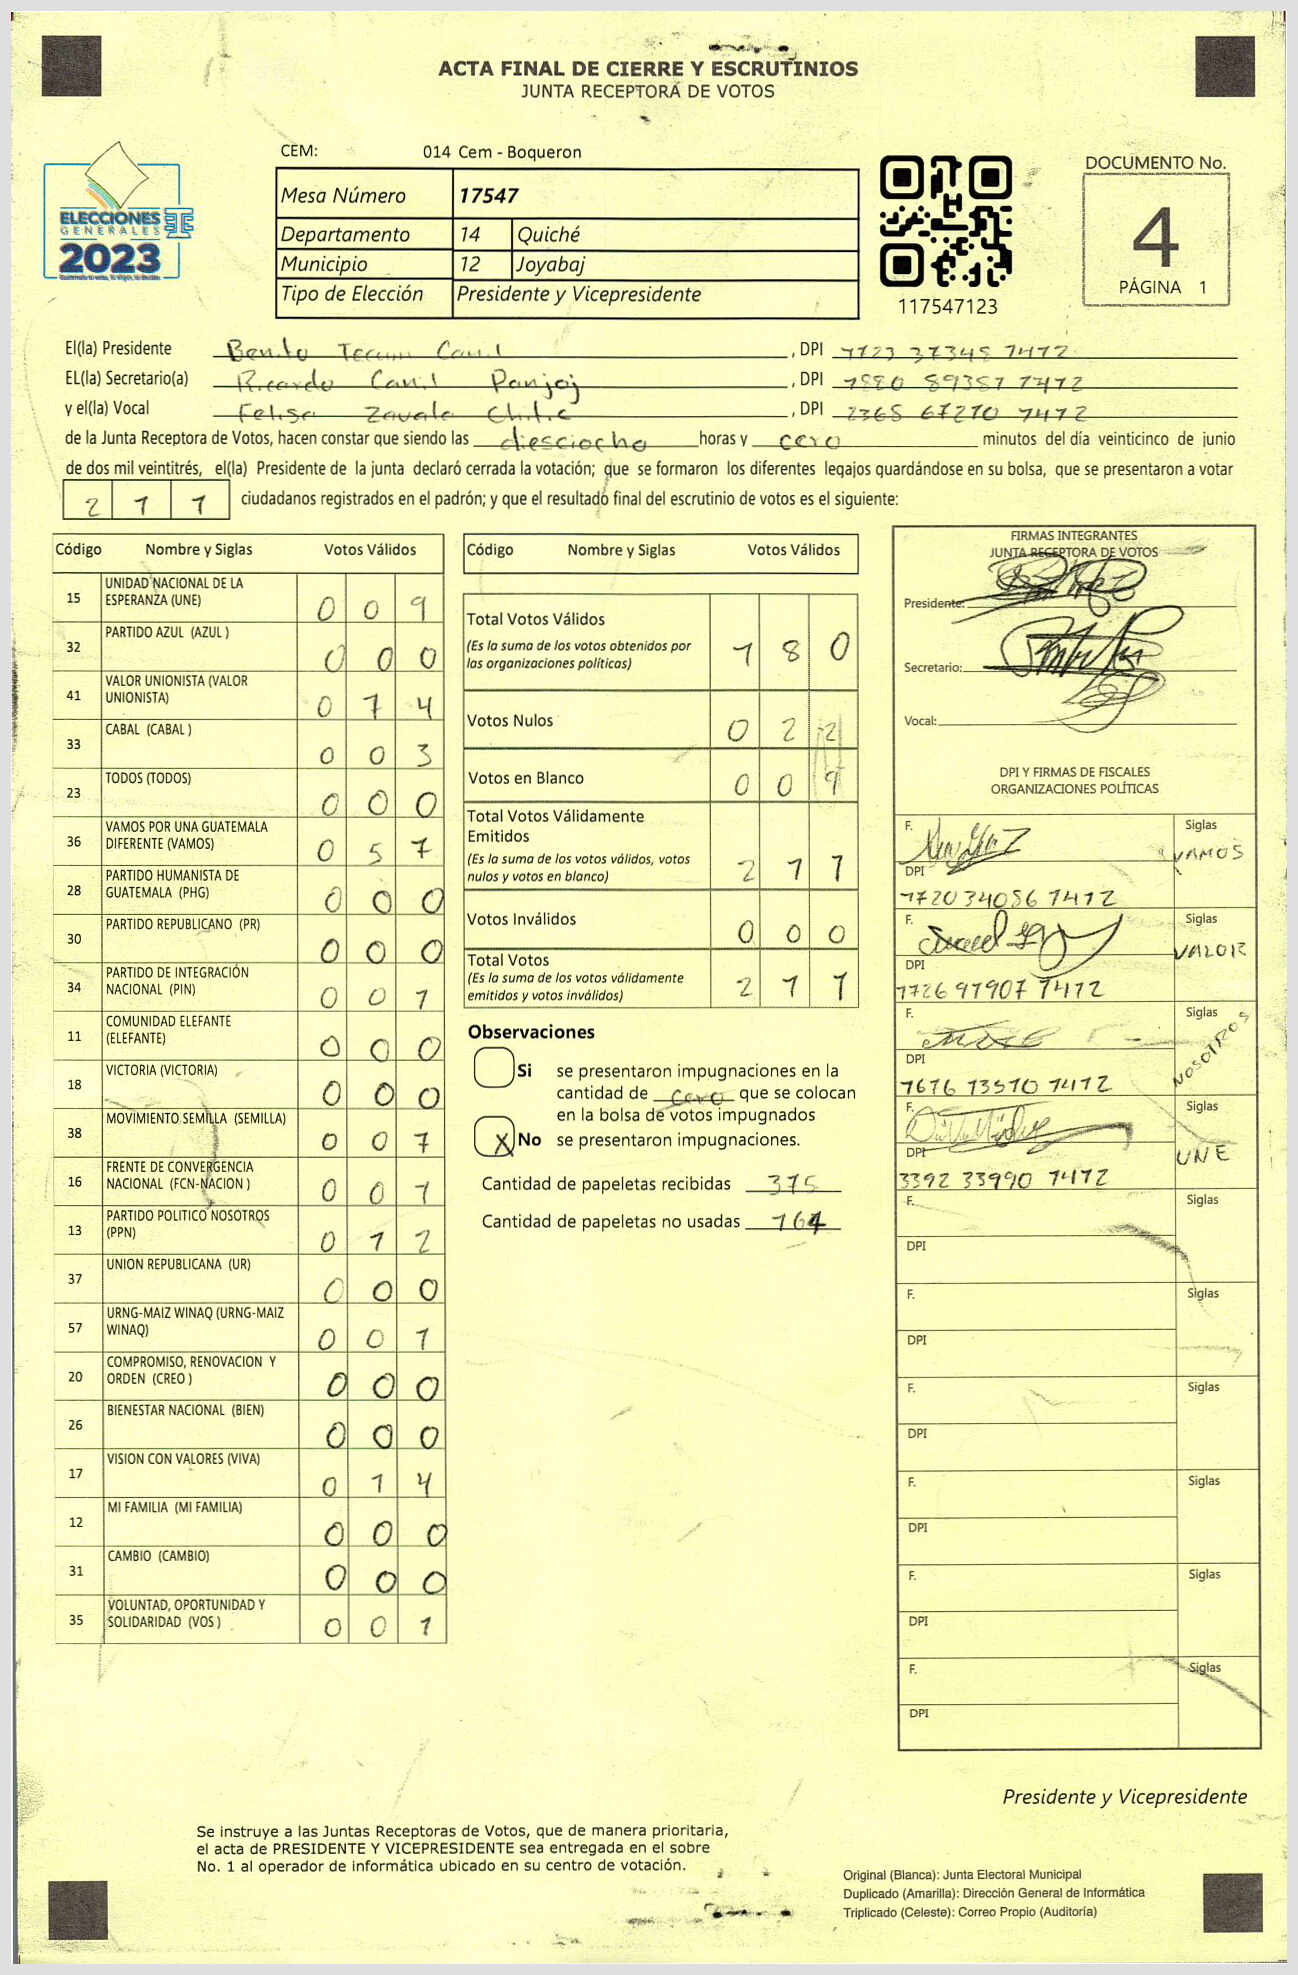 ACTA FINAL DE CIERRE Y ESCRUTINIOS
JUNTA RECEPTORA DE VOTOS
CEM: 014 Cem - Boqueron
Mesa Número 17547
Departamento 14 Quiché
Municipio 12 Joyabaj
Tipo de Elección Presidente y Vicepresidente
ELECCIONES
GENERALES
2023
117547123
DOCUMENTO No.
4
PÁGINA 1
El(la) Presidente Benito Tecum Canil , DPI 1412
EL(la) Secretario(a) Ricardo Canil Panjoj , DPI 1880 89387 1412
y el(la) Vocal Felisa Zavala , DPI 2365 1412
de la Junta Receptora de Votos, hacen constar que siendo las diesciocho horas y cero minutos del día veinticinco de junio
de dos mil veintitrés, el(la) Presidente de la junta declaró cerrada la votación; que se formaron los diferentes legajos quardándose en su bolsa, que se presentaron a votar
2 1 1 ciudadanos registrados en el padrón; y que el resultado final del escrutinio de votos es el siguiente:
Código Nombre y Siglas Votos Válidos
15 UNIDAD NACIONAL DE LA
ESPERANZA (UNE) 0 0 9
32 PARTIDO AZUL (AZUL ) 0 0 0
41 VALOR UNIONISTA (VALOR
UNIONISTA) 0 7 4
33 CABAL (CABAL ) 0 0 3
23 TODOS (TODOS) 0 0 0
36 VAMOS POR UNA GUATEMALA
DIFERENTE (VAMOS) 0 5 7
28 PARTIDO HUMANISTA DE
GUATEMALA (PHG) 0 0 0
30 PARTIDO REPUBLICANO (PR) 0 0 0
34 PARTIDO DE INTEGRACIÓN
NACIONAL (PIN) 0 0 1
11 COMUNIDAD ELEFANTE
(ELEFANTE) 0 0 0
18 VICTORIA (VICTORIA) 0 0 0
38 MOVIMIENTO SEMILLA (SEMILLA) 0 0 7
16 FRENTE DE CONVERGENCIA
NACIONAL (FCN-NACION ) 0 0 1
13 PARTIDO POLITICO NOSOTROS
(PPN) 0 1 2
37 UNION REPUBLICANA (UR) 0 0 0
57 URNG-MAIZ WINAQ (URNG-MAIZ
WINAQ) 0 0 1
20 COMPROMISO, RENOVACION Y
ORDEN (CREO ) 0 0 0
26 BIENESTAR NACIONAL (BIEN) 0 0 0
17 VISION CON VALORES (VIVA) 0 1 4
12 MI FAMILIA (MI FAMILIA) 0 0 0
31 CAMBIO (CAMBIO) 0 0 0
35 VOLUNTAD, OPORTUNIDAD Y
SOLIDARIDAD (VOS ) 0 0 1
Código Nombre y Siglas Votos Válidos
Total Votos Válidos
(Es la suma de los votos obtenidos por
las organizaciones políticas) 1 8 0
Votos Nulos 0 2 2
Votos en Blanco 0 0 9
Total Votos Válidamente
Emitidos
(Es la suma de los votos válidos, votos
nulos y votos en blanco) 2 1 1
Votos Inválidos 0 0 0
Total Votos
(Es la suma de los votos válidamente
emitidos y votos inválidos) 2 1 1
Observaciones
Si se presentaron impugnaciones en la
cantidad de cero que se colocan
en la bolsa de votos impugnados
X No se presentaron impugnaciones.
Cantidad de papeletas recibidas 375
Cantidad de papeletas no usadas 164
FIRMAS INTEGRANTES
JUNTA RECEPTORA DE VOTOS
Presidente:
Secretario:
Vocal:
DPI Y FIRMAS DE FISCALES
ORGANIZACIONES POLÍTICAS
F. Siglas
VAMOS
DPI
1720 34086 1412
F. Siglas
VALOR
DPI
1726 97907 1412
F. Siglas
NOSOTROS
DPI
1676 13510 1412
F. Siglas
UNE
DPI
3392 33990 1412
F. Siglas
DPI
F. Siglas
DPI
F. Siglas
DPI
F. Siglas
DPI
F. Siglas
DPI
F. Siglas
DPI
Presidente y Vicepresidente
Se instruye a las Juntas Receptoras de Votos, que de manera prioritaria,
el acta de PRESIDENTE Y VICEPRESIDENTE sea entregada en el sobre
No. 1 al operador de informática ubicado en su centro de votación.
Original (Blanca): Junta Electoral Municipal
Duplicado (Amarilla): Dirección General de Informática
Triplicado (Celeste): Correo Propio (Auditoría)